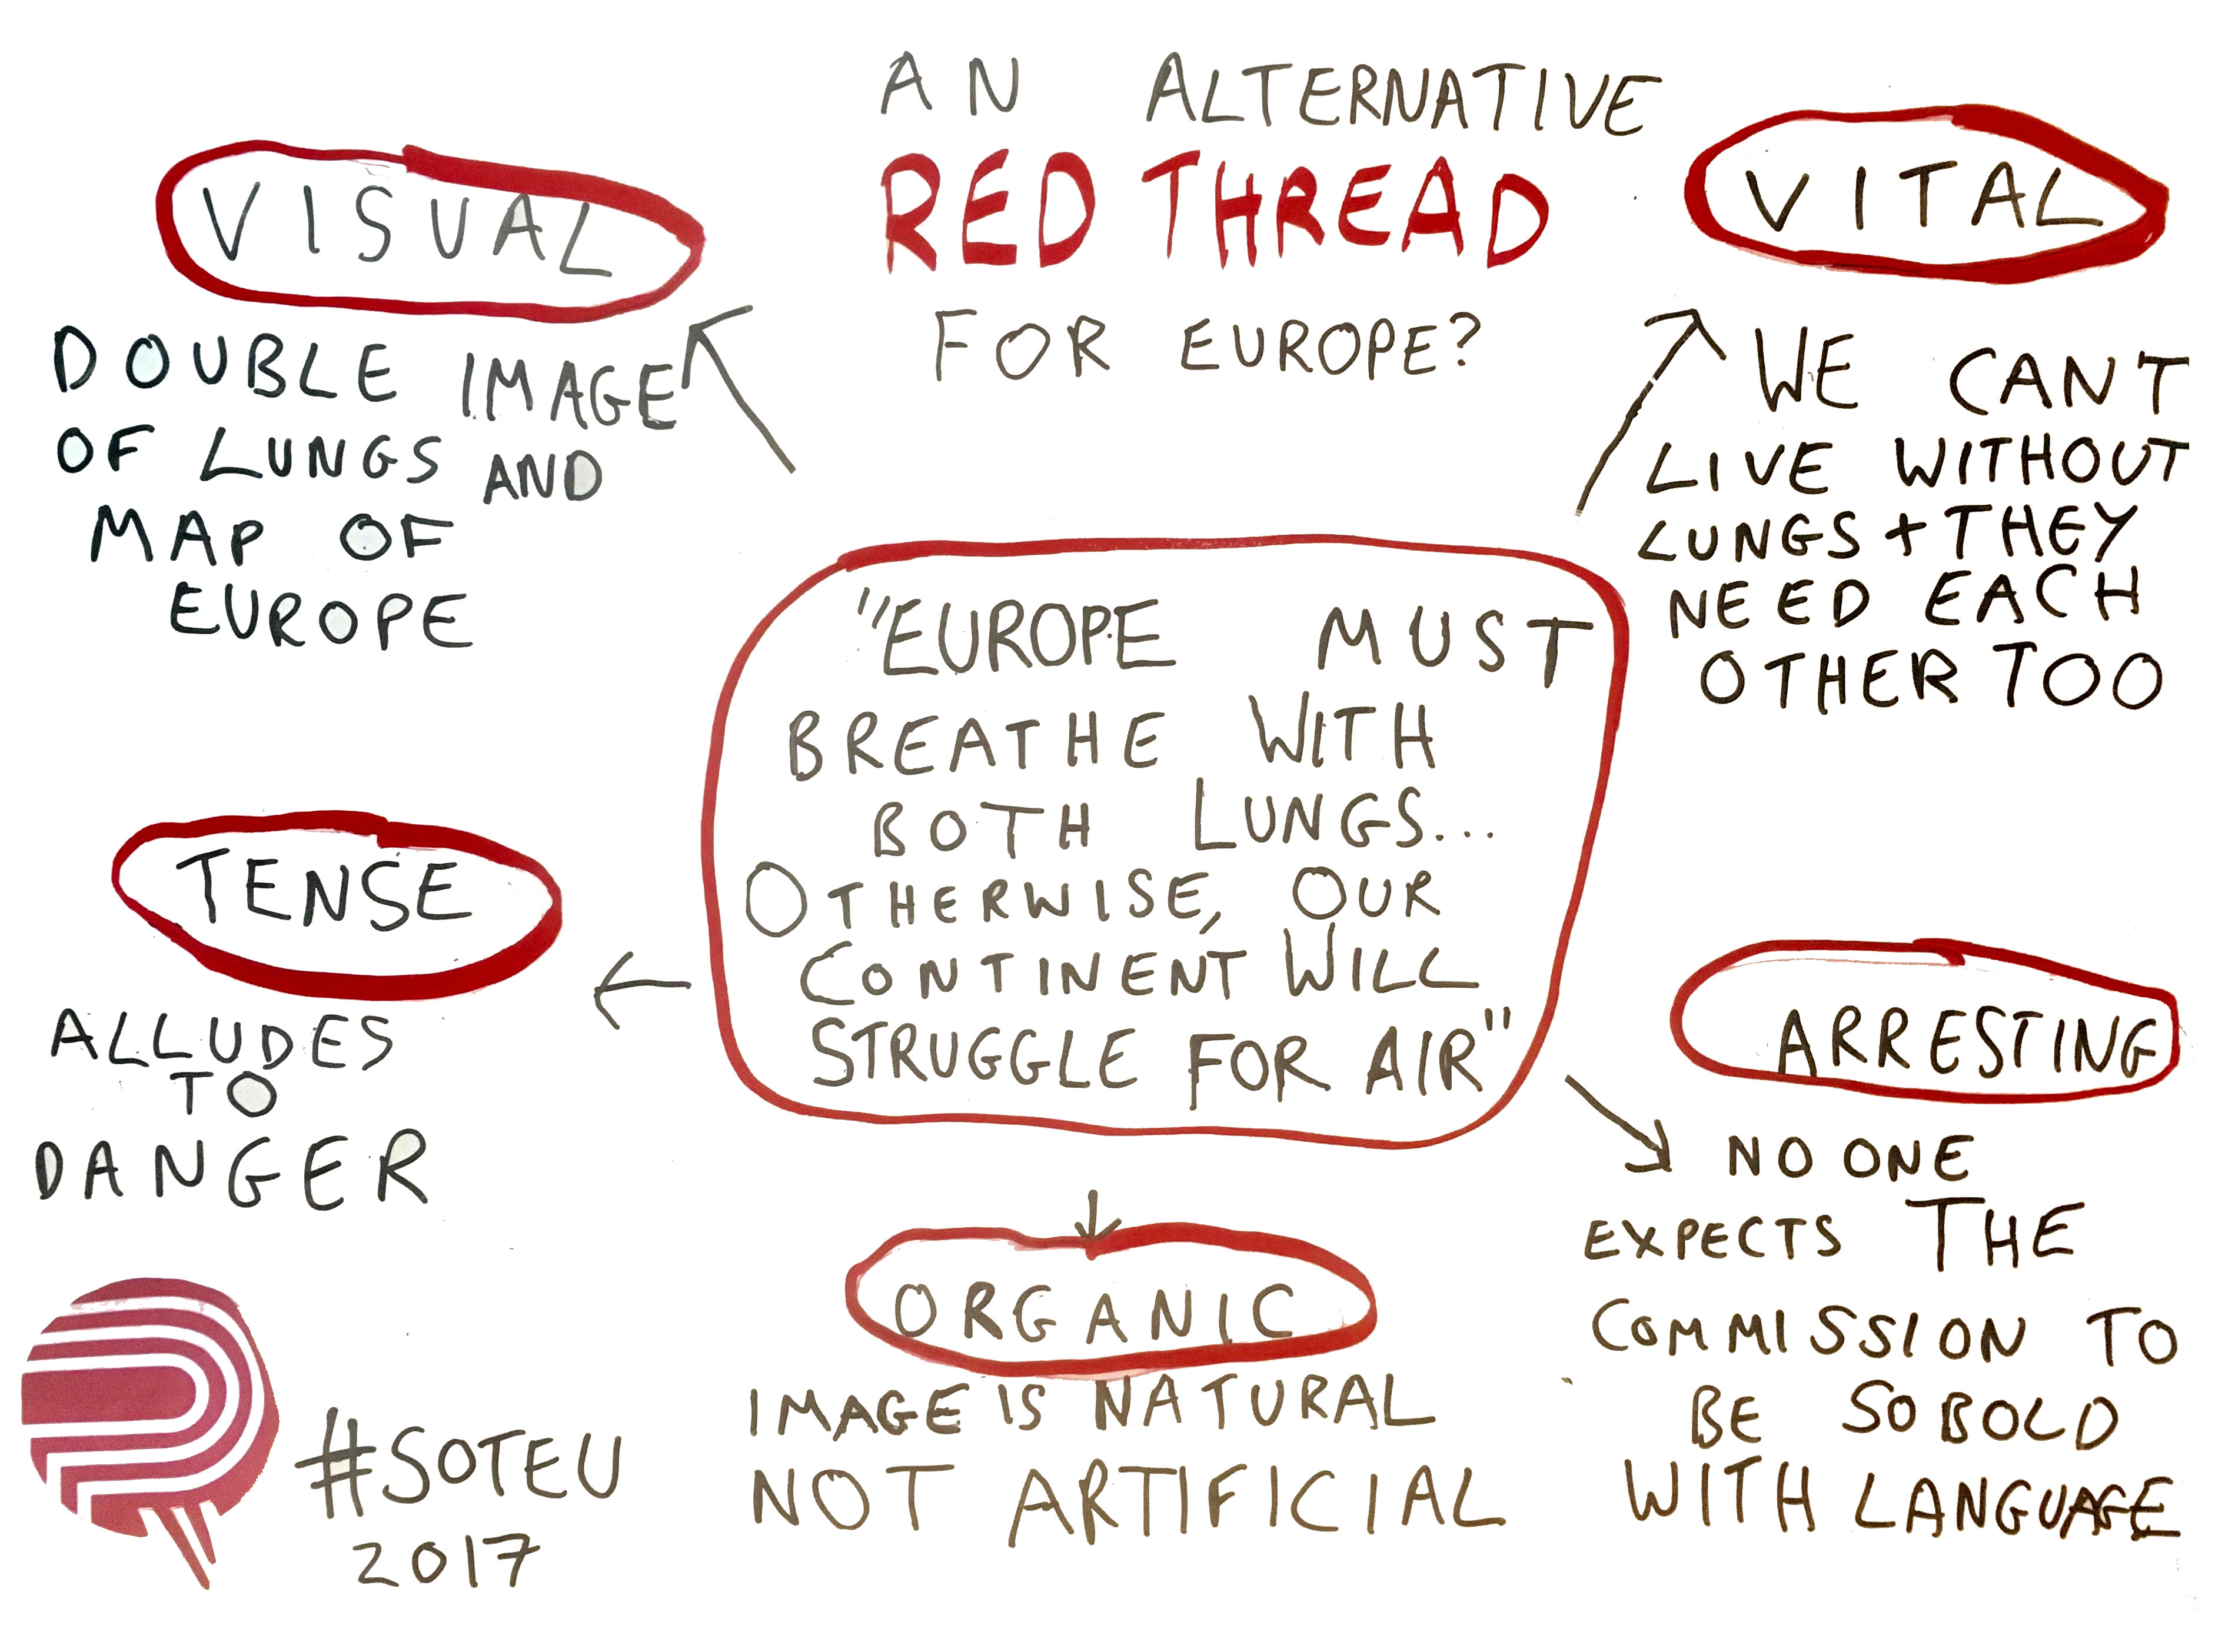 AN ALTERNATIVE
RED THREAD
FOR EUROPE?
VISUAL
DOUBLE IMAGE
OF LUNGS AND
MAP OF
EUROPE
VITAL
WE CANT
LIVE WITHOUT
LUNGS + THEY
NEED EACH
OTHER TOO
"EUROPE MUST
BREATHE WITH
BOTH LUNGS...
OTHERWISE, OUR
CONTINENT WILL
STRUGGLE FOR AIR"
TENSE
ALLUDES
TO
DANGER
ARRESTING
NO ONE
EXPECTS THE
COMMISSION TO
BE SO BOLD
WITH LANGUAGE
ORGANIC
IMAGE IS NATURAL
NOT ARTIFICIAL
#SOTEU
2017